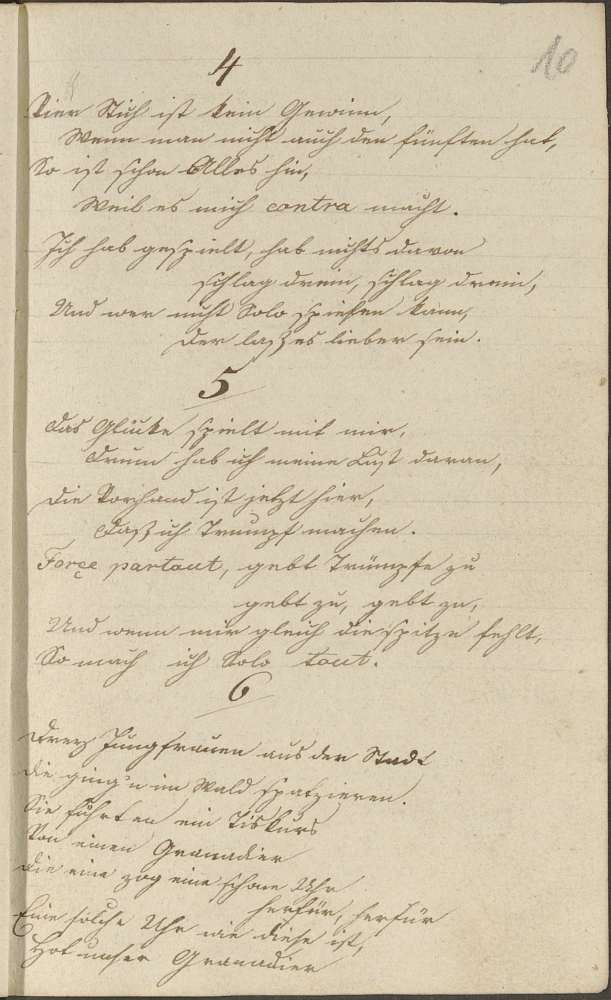 10
4
Vier Stich ist kein Gewinn,
Wenn man nicht auch den fünften hat,
So ist schon Alles hin,
Weil es mich contra macht.
Ich hab gespielt, hab nichts davon
schlag drein, schlag drein,
Und wer nicht Solo spielen kann,
der laß es lieber sein.
5
Das Glücke spielt mit mir,
drum hab ich meine Lust daran,
die Vorhand ist jetzt hier,
daß ich Trumpf machen.
Force partout, gebt Trümpfe zu
gebt zu, gebt zu,
Und wenn mir gleich die Spitze fehlt,
So mach ich Solo tout.
6
Drey Jungfrauen aus der Stadt
die ging'n im Wald spatzieren.
Sie führten ein Diskurs
Von einen Granadier
die eine zog eine schöne Uhr
herfür, herfür
Eine solche Uhr wie diese ist,
Hat unser Granadier